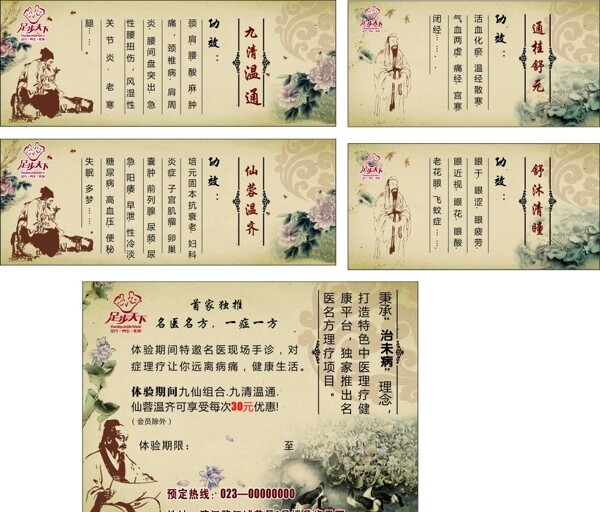 足步天下
九清温通
功效：
颈肩腰酸麻肿
痛，颈椎病.肩周
炎.腰间盘突出.急
性腰扭伤，风湿性
关节炎.老寒
腿……
通桂舒元
功效：
活血化瘀 温经散寒
气血两虚 痛经 宫寒
闭经……
足步天下
仙蓉温齐
功效：
培元固本抗衰老 妇科
炎症 子宫肌瘤 卵巢
囊肿 前列腺 尿频 尿
急 阳痿 早泄 性冷淡
糖尿病 高血压 便秘
失眠 多梦……
舒沐清瞳
功效：
眼干 眼涩 眼疲劳
眼近视 眼花 眼酸
老花眼 飞蚊症……
足步天下
首家独推
名医名方，一症一方
体验期间特邀名医现场手诊，对
症理疗让你远离病痛，健康生活。
体验期间九仙组合.九清温通.
仙蓉温齐可享受每次30元优惠!
(会员除外)
体验期限： 至
预定热线：023—00000000
秉承"治未病"理念，
打造特色中医理疗健
康平台，独家推出名
医名方理疗项目。